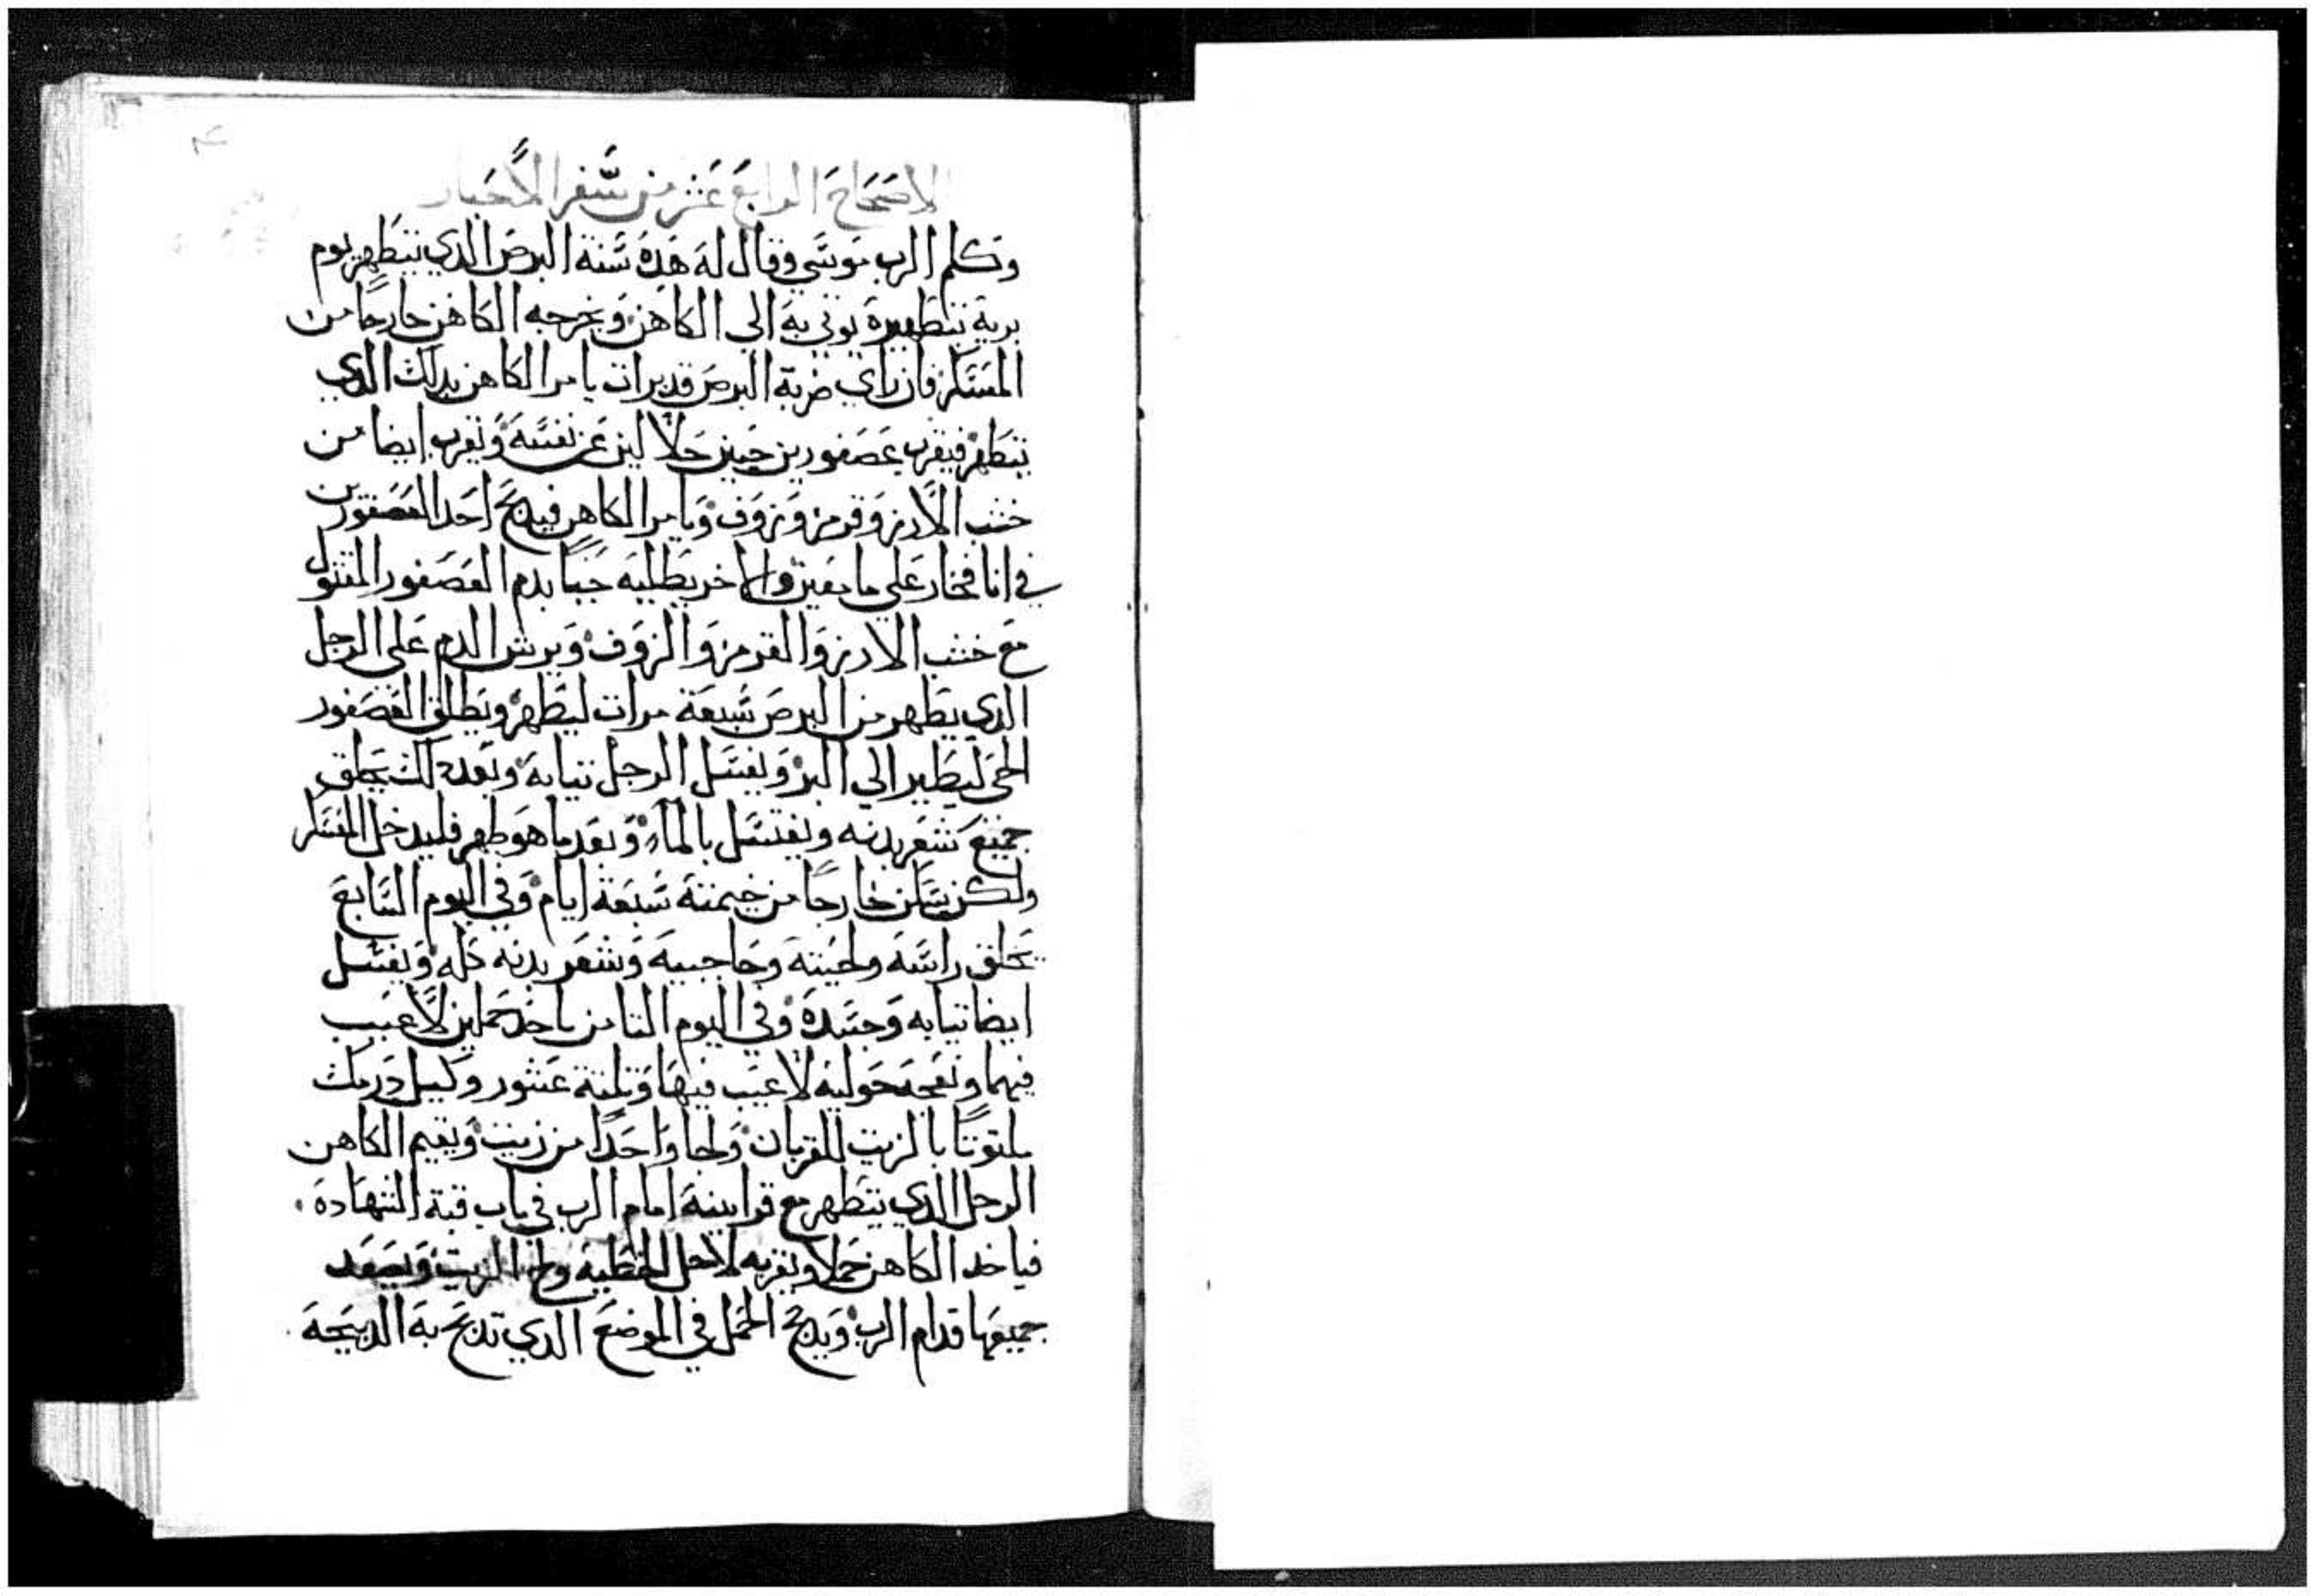 الاصحاح الرابع عشر من سفر الاحبار
وكلم الرب موسي وقال له هده سنة البرص الدي يتطهر يوم
برية بتطهيره يوتي به الي الكاهن ويخرجه الكاهن خارجا من
المسكن فان راي ضربة البرص قد برات يامر الكاهن بدلك الدي
يتطهر فيقرب عصفورين حيين حلالين عن نفسه ويقرب ايضا من
خشب الارز وقرمز وزوف ويامر الكاهن فيدبح احد العصفورين
في انا فخار علي ما معين والاخر يطليه حيا بدم العصفور المقتول
مع خشب الارز والقرمز والزوف ويرش الدم علي الرجل
الدي يطهر من البرص سبعة مرات ليطهر ويطلق العصفور
الحي ليطير الي البر ويغسل الرجل تيابه وبعد دلك يحلق
جميع شعر بدنه ويغتسل بالماء وبعد ما هو طهر فليدخل المسكن
ولكن يسكن خارجا من خيمته سبعة ايام وفي اليوم السابع
يحلق راسه ولحيته وحاجبيه وشعر بدنه كله ويغسل
ايضا تيابه وجسده وفي اليوم التامن ياخد حملين لا عيب
فيهما ونعجه حوليه لا عيب فيها وتلتة عشور وكيل درمك
ملتوتا بالزيت للقربان ولجا واحدا من زيت ويقيم الكاهن
الرجل الدي يتطهر مع قرابينه امام الرب في باب قبة الشهادة
فياخد الكاهن حملا ويقربه لاجل الخطية ولج الزيت ويصعد
جميعها قدام الرب ويدبح الحمل في الموضع الدي تدبح به الدبيحه